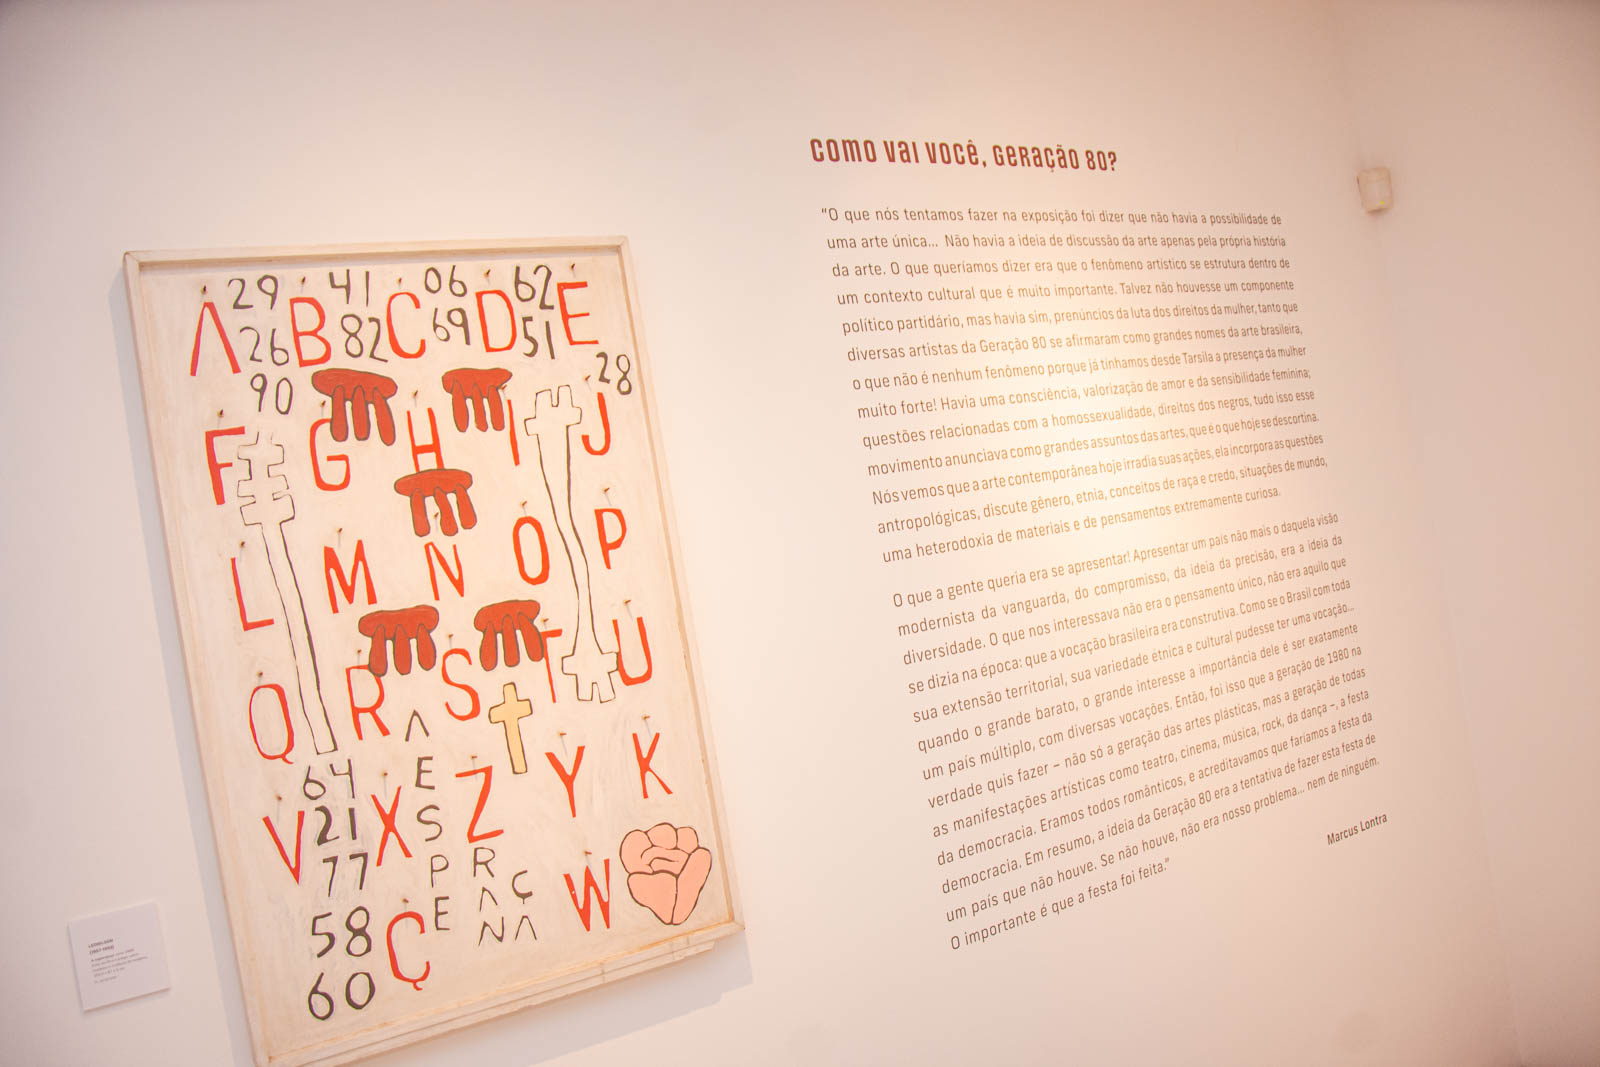 29 41 06 62
A B C D E
26 82 69 51
90 28
F G H I J
L M N O P
Q R S T U
64
21
77
58
60
V X Z Y K
Ç W
A
ESPE
RAN
ÇA
LEONILSON
COMO VAI VOCÊ, GERAÇÃO 80?
“O que nós tentamos fazer na exposição foi dizer que não havia a possibilidade de
uma arte única... Não havia a ideia de discussão da arte apenas pela própria história
da arte. O que queríamos dizer era que o fenômeno artístico se estrutura dentro de
um contexto cultural que é muito importante. Talvez não houvesse um componente
político partidário, mas havia sim, prenúncios da luta dos direitos da mulher, tanto que
diversas artistas da Geração 80 se afirmaram como grandes nomes da arte brasileira,
o que não é nenhum fenômeno porque já tínhamos desde Tarsila a presença da mulher
muito forte! Havia uma consciência, valorização de amor e da sensibilidade feminina;
questões relacionadas com a homossexualidade, direitos dos negros, tudo isso esse
movimento anunciava como grandes assuntos das artes, que é o que hoje se descortina.
Nós vemos que a arte contemporânea hoje irradia suas ações, ela incorpora as questões
antropológicas, discute gênero, etnia, conceitos de raça e credo, situações de mundo,
uma heterodoxia de materiais e de pensamentos extremamente curiosa.
O que a gente queria era se apresentar! Apresentar um país não mais o daquela visão
modernista da vanguarda, do compromisso, da ideia da precisão, era a ideia da
diversidade. O que nos interessava não era o pensamento único, não era aquilo que
se dizia na época: que a vocação brasileira era construtiva. Como se o Brasil com toda
sua extensão territorial, sua variedade étnica e cultural pudesse ter uma vocação...
quando o grande barato, o grande interesse a importância dele é ser exatamente
um país múltiplo, com diversas vocações. Então, foi isso que a geração de 1980 na
verdade quis fazer – não só a geração das artes plásticas, mas a geração de todas
as manifestações artísticas como teatro, cinema, música, rock, da dança –, a festa
da democracia. Eramos todos românticos, e acreditavamos que faríamos a festa da
democracia. Em resumo, a ideia da Geração 80 era a tentativa de fazer esta festa de
um país que não houve. Se não houve, não era nosso problema... nem de ninguém.
O importante é que a festa foi feita.”
Marcus Lontra